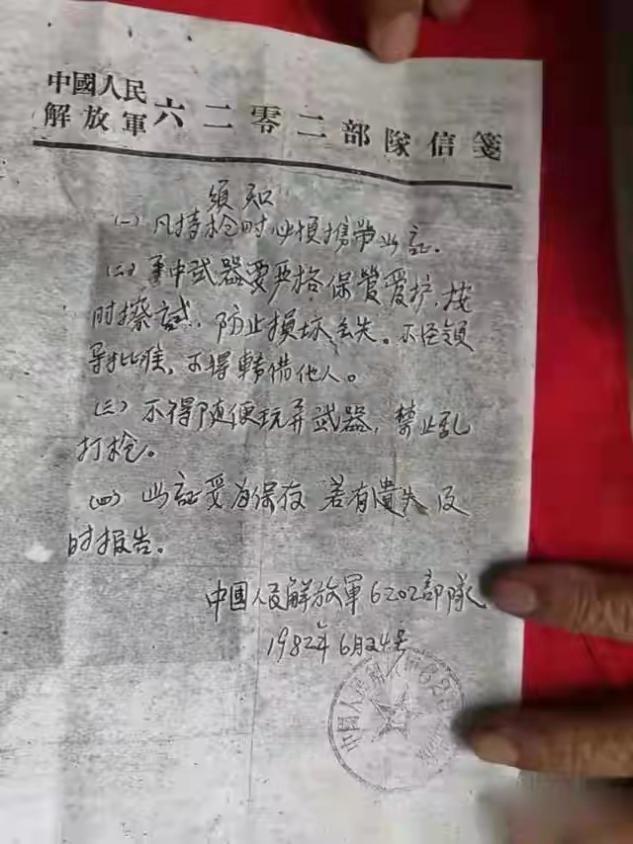 中國人民
解放軍六二零二部隊信箋
须知
(一) 凡持枪时必须携带此証.
(二) 手中武器要严格保管爱护,按
时擦试,防止損坏丢失。不经领
导批准,不得轉借他人。
(三) 不得随便玩弄武器,禁止乱
打枪。
(四) 此証妥为保存 若有遺失 及
时报告。
中國人民解放軍6202部隊
1982年6月24号
中國人民解